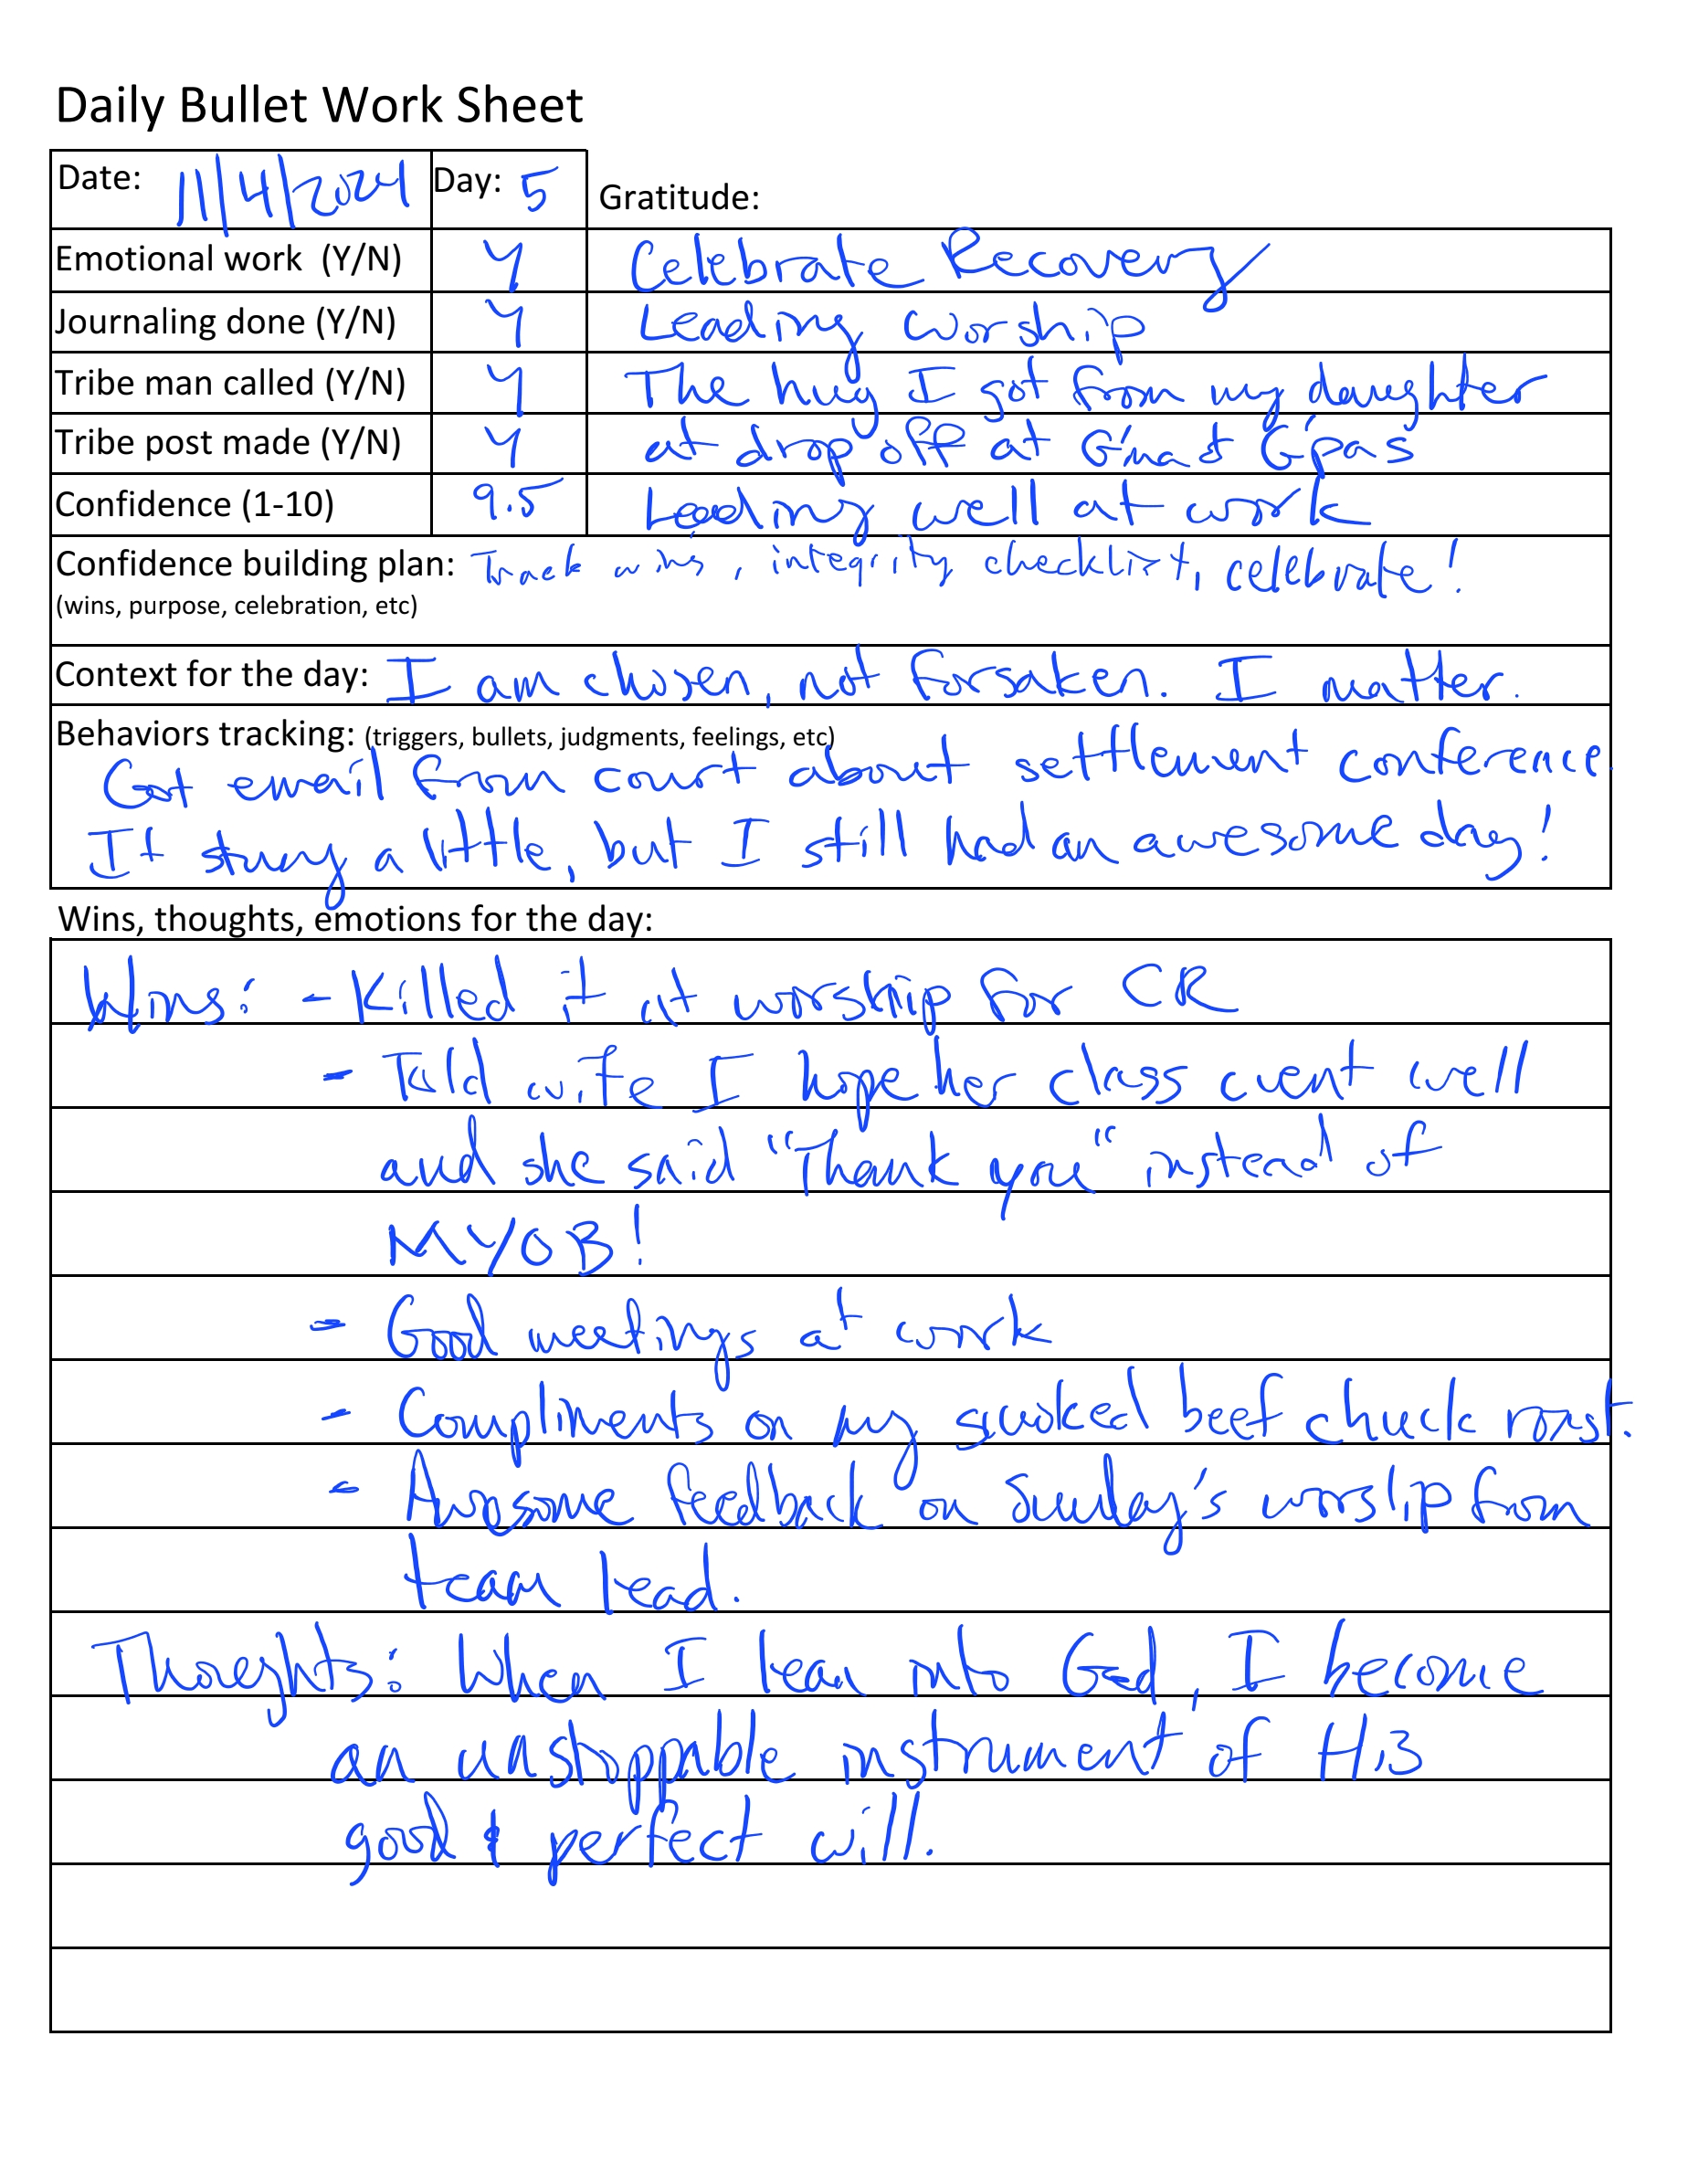 Daily Bullet Work Sheet
Date: 11/4/2024 Day: 5 Gratitude:
Emotional work (Y/N) Y Celebrate Recovery
Journaling done (Y/N) Y Leading worship
Tribe man called (Y/N) Y The hug I got from my daughter
Tribe post made (Y/N) Y at drop off at G'ma & G'pas
Confidence (1-10) 9.5 Leading well at work
Confidence building plan: Track wins, integrity checklist, celebrate!
(wins, purpose, celebration, etc)
Context for the day: I am chosen, not forsaken. I matter.
Behaviors tracking: (triggers, bullets, judgments, feelings, etc)
Got email from court about settlement conference.
It stung a little, but I still had an awesome day!
Wins, thoughts, emotions for the day:
Wins: - Killed it at worship for CR
- Told wife I hope her class went well
and she said "Thank you" instead of
MYOB!
- Good meetings at work
- Compliments on my smoked beef chuck roast.
- Awesome feedback on Sunday's worship from
team lead.
Thoughts: When I lean into God, I become
an unstoppable instrument of His
good & perfect will.